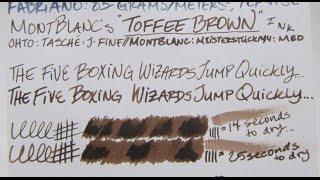 FABRIANO: 85 GRAMS/METERS,
MONTBLANC'S "TOFFEE BROWN" INK
OHTO: TASCHE: F. FINE//MONTBLANC: MEISTERSTUCK 144: MED
THE FIVE BOXING WIZARDS JUMP QUICKLY...
THE FIVE BOXING WIZARDS JUMP QUICKLY...
=14 seconds to dry...
=25 seconds to dry